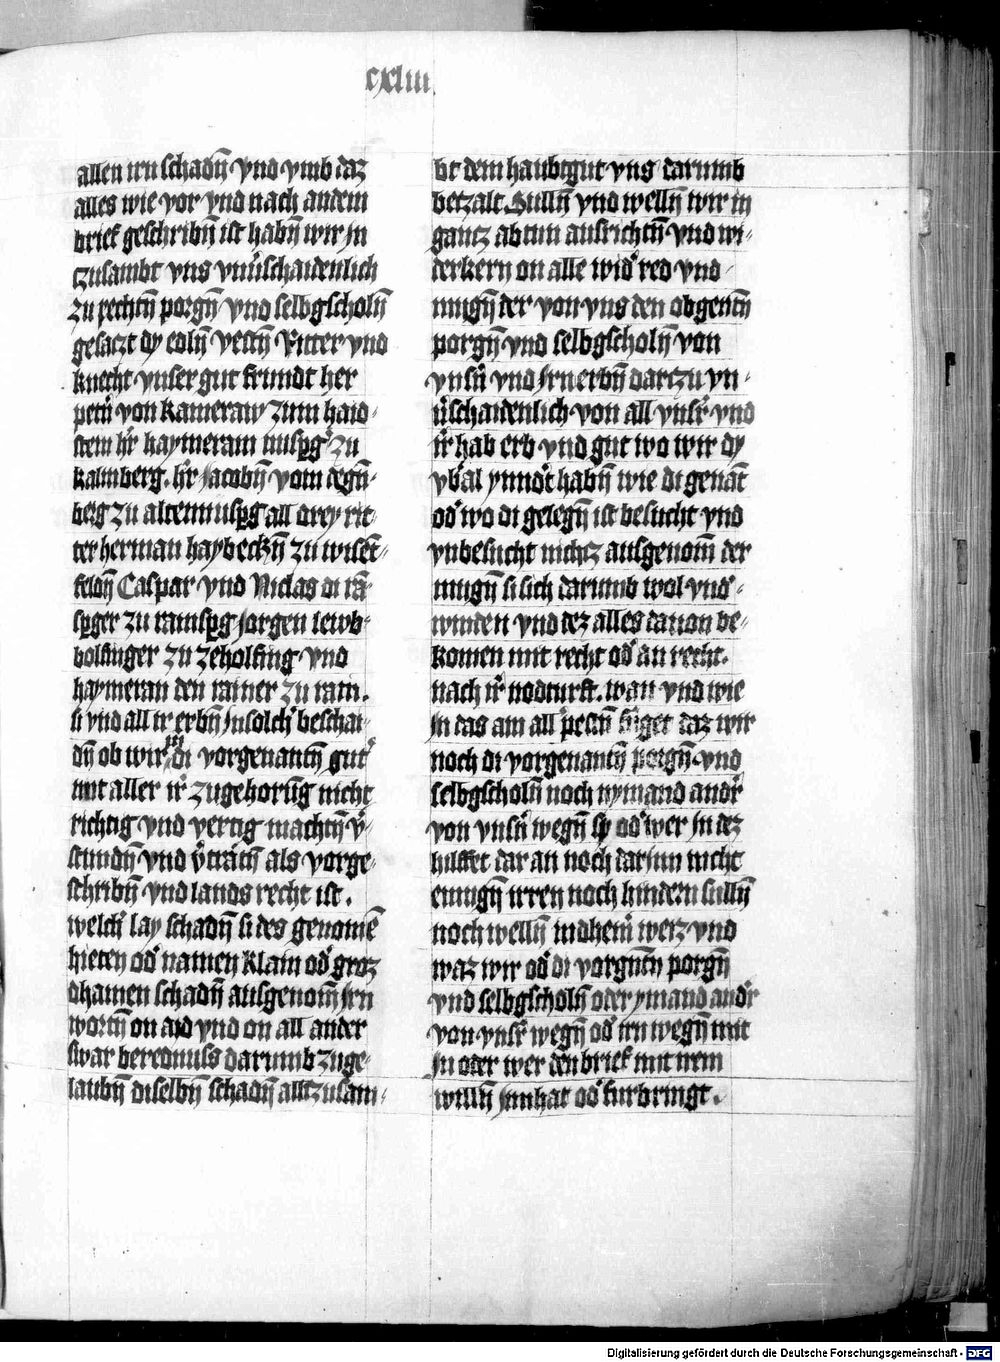 cxliii
allen irn schadn̄ vnd vmb daz
alles wie vor vnd nach an dem
brief geschribn̄ ist habn̄ wir jn
czusambt vns vnu᷑schaidenlich
zu rechtn̄ porgn̄ vnd selbgscholn̄
gesaczt dy edln̄ vestn̄ Ritter vnd
knecht vnser gut frundt her
petn᷑ von kameraw zum haid-
stein hr᷑ haymeram nusp̱g᷑ zu
kalmberg. hr᷑ jacobn̄ vom degn̄-
berg zu altennusp̱g all drey rit-
ter herman haybeckn̄ zu wisēt-
feldn̄ Caspar vnd Niclas di rā-
sp̱ger zu ramsp̱g jorgen lewb-
bolfinger zu zeholfing vnd
haymeran den rainer zu rain.
si vnd all ir erbn̄ jn solch᷑ beschai-
dn̄ ob wir jn di vorgenantn̄ gut᷑
mit aller ir᷑ zugehorūg nicht
richtig vnd vertig machtn̄ v᷑-
stundn̄ vnd v᷑trātn̄ als vorge-
schribn̄ vnd lands recht ist.
welch᷑ lay schadn̄ si des genomē
hieten od᷑ namen klain od᷑ groz
dhainen schadn̄ ausgenom̄ jrn
wortn̄ on aid vnd on all ander
swar berednuss darumb zuge-
laubn̄ diselbn̄ schadn̄ alltzusam-
bt dem haubtgut vns darumb
betzalt Sulln̄ vnd welln̄ wir in
gantz abtun ausrichtn̄ vnd wi-
derkern on alle wid᷑red vnd
mugn̄ der von vns den obgentn̄
porgn̄ vnd selbgscholn̄ von
vnsn᷑ vnd jrn erbn̄ dartzu vn-
u᷑schaidenlich von all vnsr᷑ vnd
ir᷑ hab erb vnd gut wo wir dy
vb᷑al ynndt᷑ habn̄ wie di genāt
od᷑ wo di gelegn̄ ist besucht vnd
vnbesucht nichtz ausgenom̄ der
mugn̄ si sich darumb wol vnd᷑-
winden vnd dez alles dauon be-
komen mit recht od᷑ an recht.
nach ir᷑ nodturft. wan vnd wie
jn das am all᷑pestn̄ fu᷑get daz wir
noch di vorgenantn̄ porgn̄ vnd
selbgscholn̄ noch nymand andr᷑
von vnsn᷑ wegn̄ sy od᷑ wer jn dez
hilffet dar an noch darjnn nicht
enmugn̄ irren noch hindern sulln̄
noch welln̄ in dhein᷑ weiz vnd
waz wir od᷑ di vorgntn̄ porgn̄
vnd selbgscholn̄ oder ymand andr᷑
von vnsr᷑ wegn̄ od᷑ irn wegn̄ mit
jn oder wer den brief mit irem
willn̄ jnnhat od᷑ furbringt.
Digitalisierung gefördert durch die Deutsche Forschungsgemeinschaft - DFG